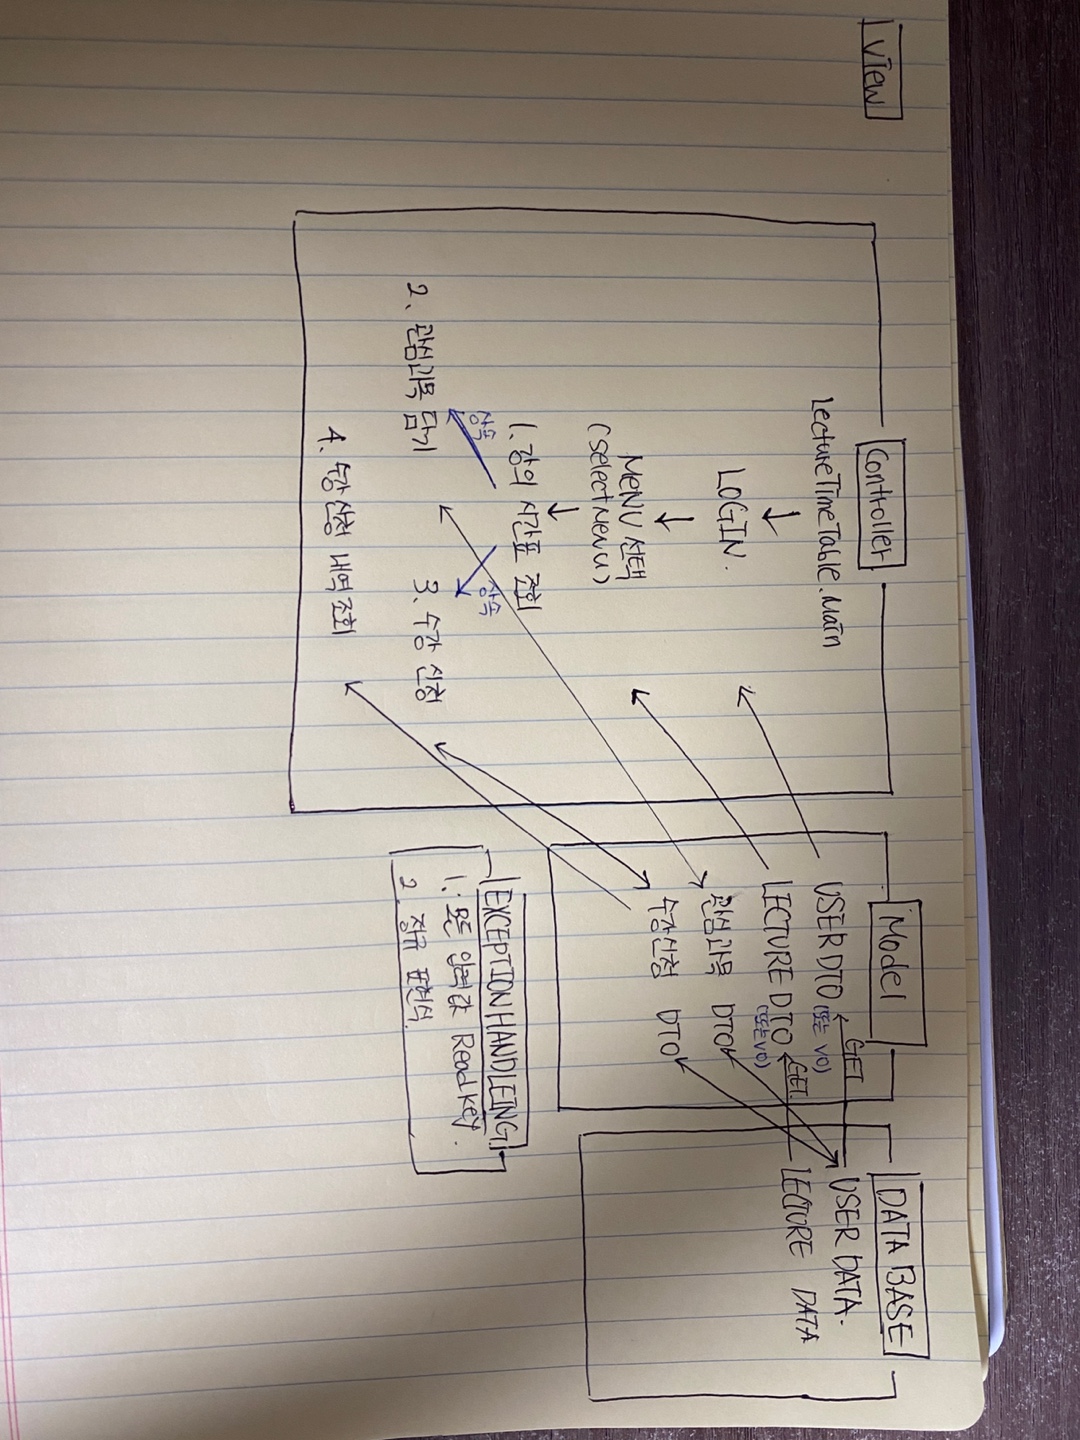 View
Controller
LectureTimeTable.Main
LOGIN.
MENU 선택
(selectMenu)
1. 강의 시간표 조회
상속
상속
2. 관심과목 담기
3. 수강 신청
4. 수강 신청 내역 조회
Model
USER DTO (또는 VO)
LECTURE DTO
(또는 VO)
관심과목 DTO
수강신청 DTO
GET
GET.
DATA BASE
USER DATA.
LECTURE DATA
EXCEPTION HANDLEING
1. 모든 입력값 ReadKey.
2. 정규 표현식.